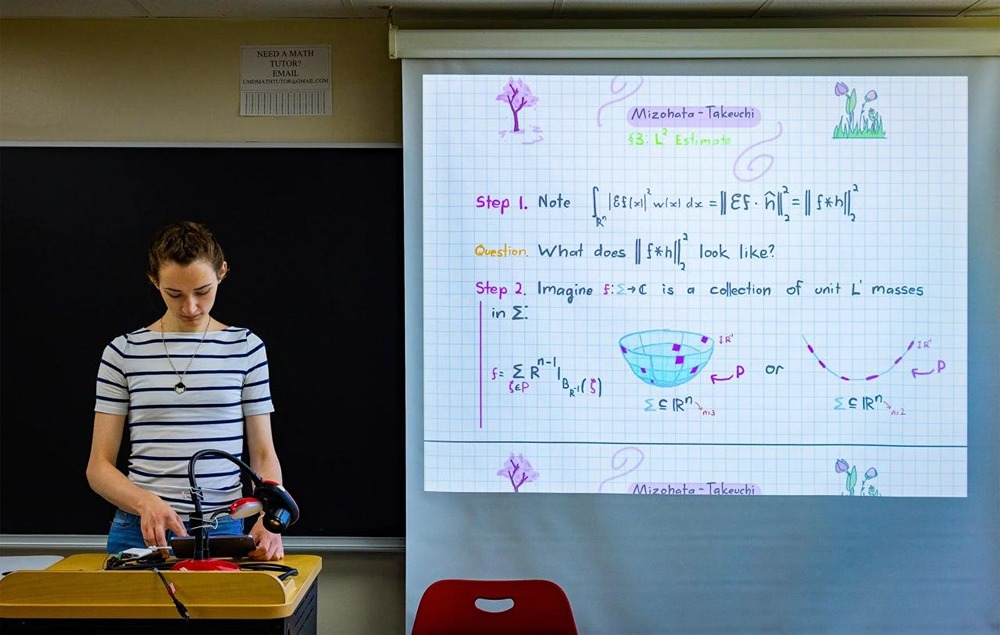 NEED A MATH
TUTOR?
EMAIL
UMDMATHTUTOR@GMAIL.COM
Mizohata-Takeuchi
§3: L² Estimate
Step 1. Note ∫_{ℝⁿ} |Ɛf(x)|² w(x) dx = ‖Ɛf · ĥ‖₂² = ‖f*h‖₂²
Question. What does ‖f*h‖₂² look like?
Step 2. Imagine f: Σ→ℂ is a collection of unit L¹ masses
in Σ:
f = Σ_{ζ∈P} R^{n-1} 1_{B_{R⁻¹}(ζ)}
IR⁻¹
P
or
IR⁻¹
P
Σ ⊆ ℝⁿ
n=3
Σ ⊆ ℝⁿ
n=2
Mizohata-Takeuchi